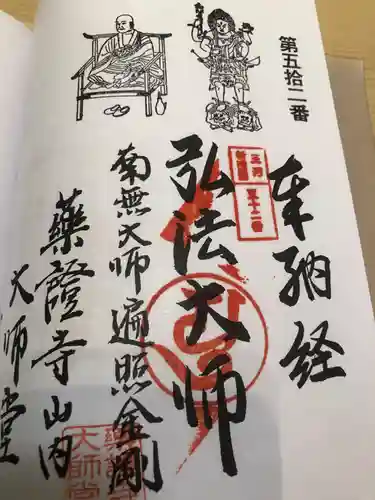 第五拾二番
奉納経
弘法大師
南無大師遍照金剛
薬證寺山内
大师堂
第五十二番
大師堂